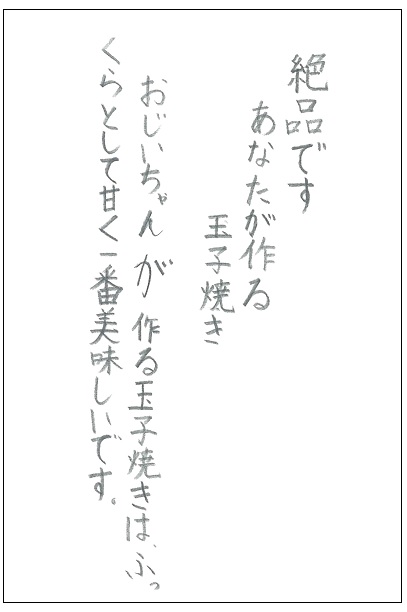 絶品です
あなたが作る
玉子焼き
おじいちゃんが作る玉子焼きは、ふっ
くらとして甘く一番美味しいです。